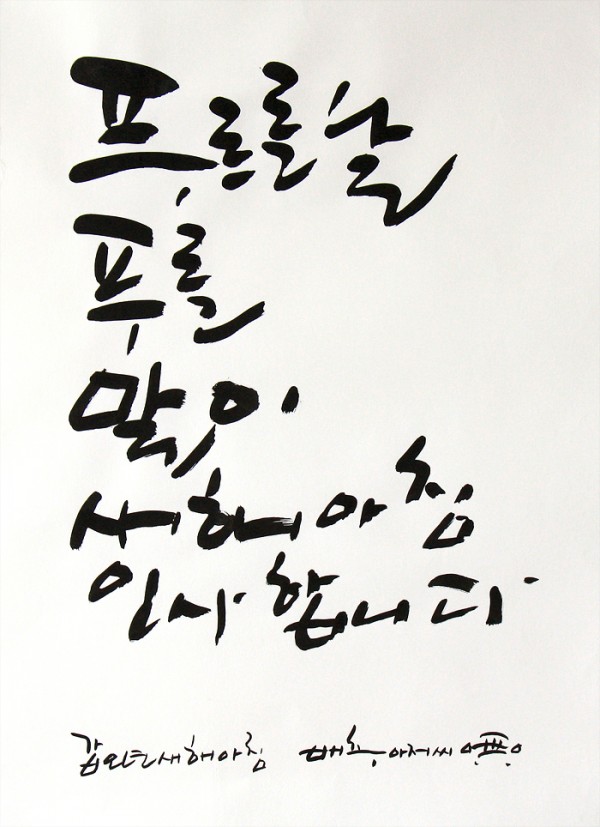 푸르를날
푸를
말이
새해아침
인사합니다
갑오년새해아침 아저씨